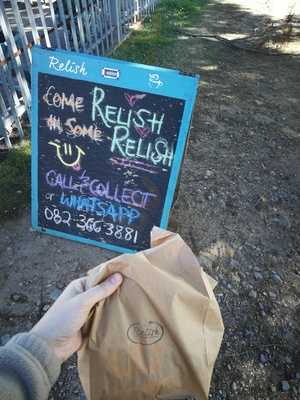 Relish
COME RELISH
IN SOME RELISH
CALL & COLLECT
or WHATSAPP
082 366 3881
Relish